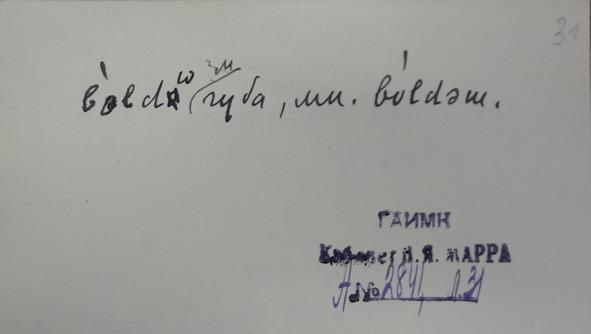 31
bóldω
губа, мн. bóldəm.
ГАИМК
Кабинет Н. Я. МАРРА
А №2841 л.31